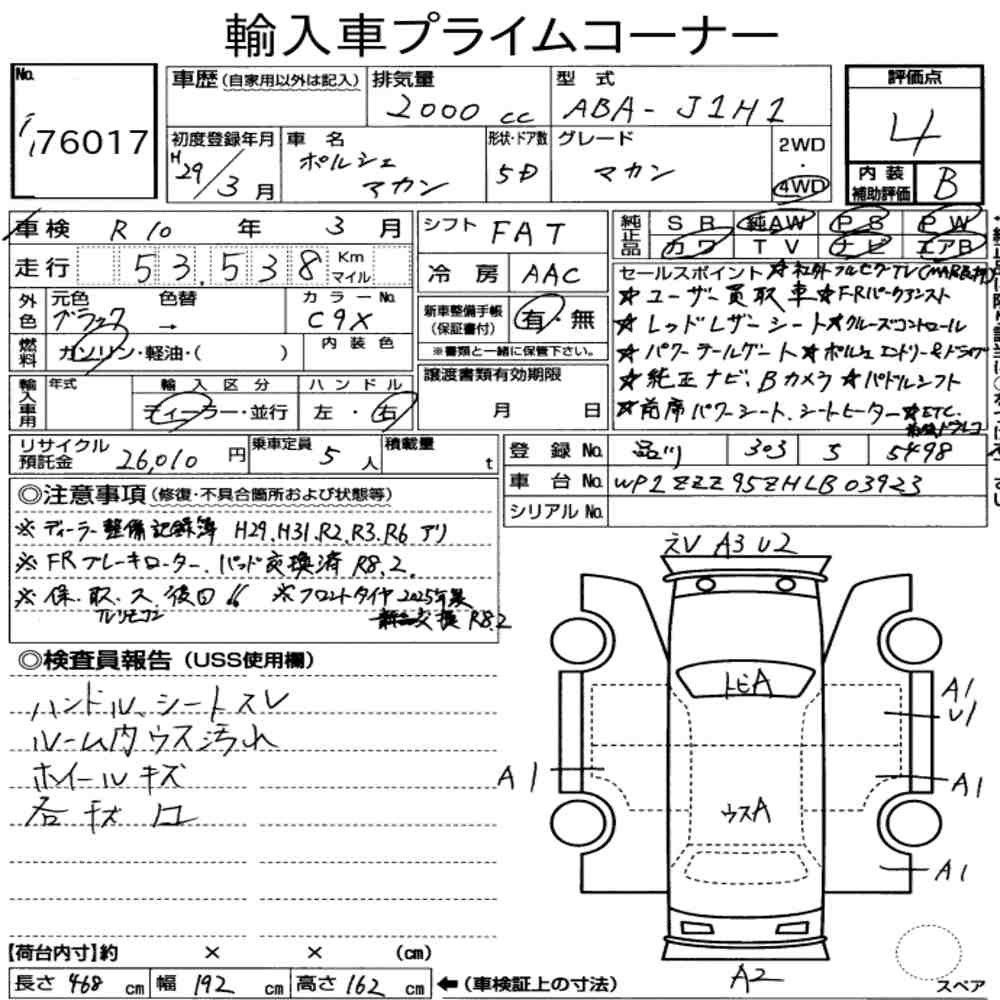 輸入車プライムコーナー
No.
76017
車歴 (自家用以外は記入)
排気量
2000 cc
型式
ABA- J1H1
評価点
4
初度登録年月
H29/3月
車名
ポルシェ
マカン
形状・ドア数
5D
グレード
マカン
2WD
・
4WD
内装
補助評価
B
車検 R10年 3月
走行 53,538 Km
マイル
シフト FAT
冷房 AAC
純正品
SR 純AW PS PW
カワ TV ナビ エアB
外色
元色 色替
ブラック →
カラーNo.
C9X
燃料
ガソリン・軽油・( )
内装色
新車整備手帳
(保証書付)
有・無
※書類と一緒に保管下さい。
セールスポイント ★社外フルセグTV
★ユーザー買取車★F・Rパークアシスト
★レッドレザーシート★クルーズコントロール
★パワーテールゲート★ポルシェエントリー&ドライブ
★純正ナビ、Bカメラ★パドルシフト
★前席パワーシート、シートヒーター★ETC.
前後ドラレコ
輸入車用
年式
輸入区分
ディーラー・並行
ハンドル
左・右
譲渡書類有効期限
月 日
リサイクル
預託金
26,010円
乗車定員
5人
積載量
t
登録No. 品川 303 5498
車台No. WP1ZZZ95ZHLB03923
シリアルNo.
◎注意事項 (修復・不具合箇所および状態等)
※ディーラー整備記録簿 H29.H31.R2.R3.R6 アリ
※FRブレーキローター、パッド交換済 R8.2.
※保、取、ス、後日 ※フロントタイヤ2025年製
交換 R8.2
◎検査員報告 (USS使用欄)
ハンドル、シートスレ
ルーム内ウス汚れ
ホイールキズ
えV A3 U2
トビA
A1
U1
A1
A1
ウスA
A1
A2
スペア
【荷台内寸】約 × × (cm)
長さ 468 cm 幅 192 cm 高さ 162 cm ←(車検証上の寸法)